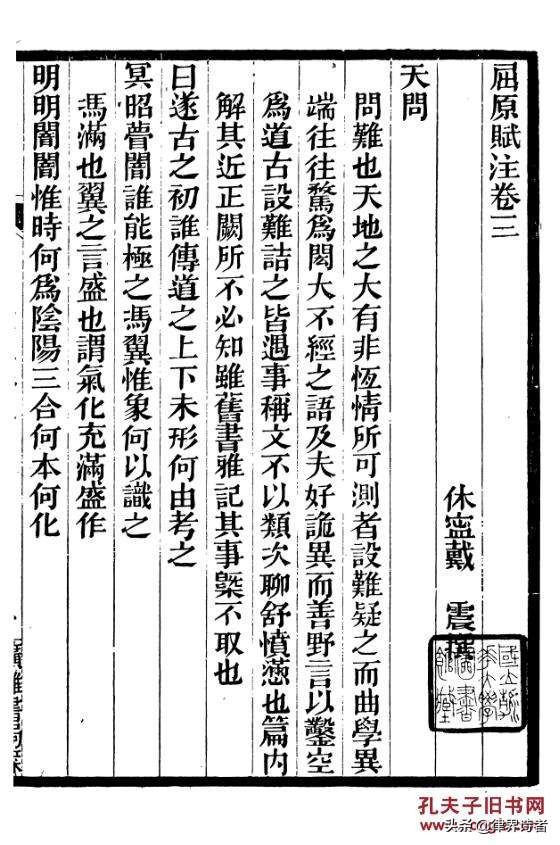 屈原賦注卷三
休寍戴　震撰
天問
問難也天地之大有非恆情所可測者設難疑之而曲學異
端往往騖爲閎大不經之語及夫好詭異而善野言以鑿空
爲道古設難詰之皆遇事稱文不以類次聊舒憤懣也篇内
解其近正闕所不必知雖舊書雅記其事槩不取也
曰遂古之初誰傳道之上下未形何由考之
冥昭瞢闇誰能極之馮翼惟象何以識之
馮滿也翼之言盛也謂氣化充滿盛作
明明闇闇惟時何爲陰陽三合何本何化
孔夫子旧书网
头条@律界诗者